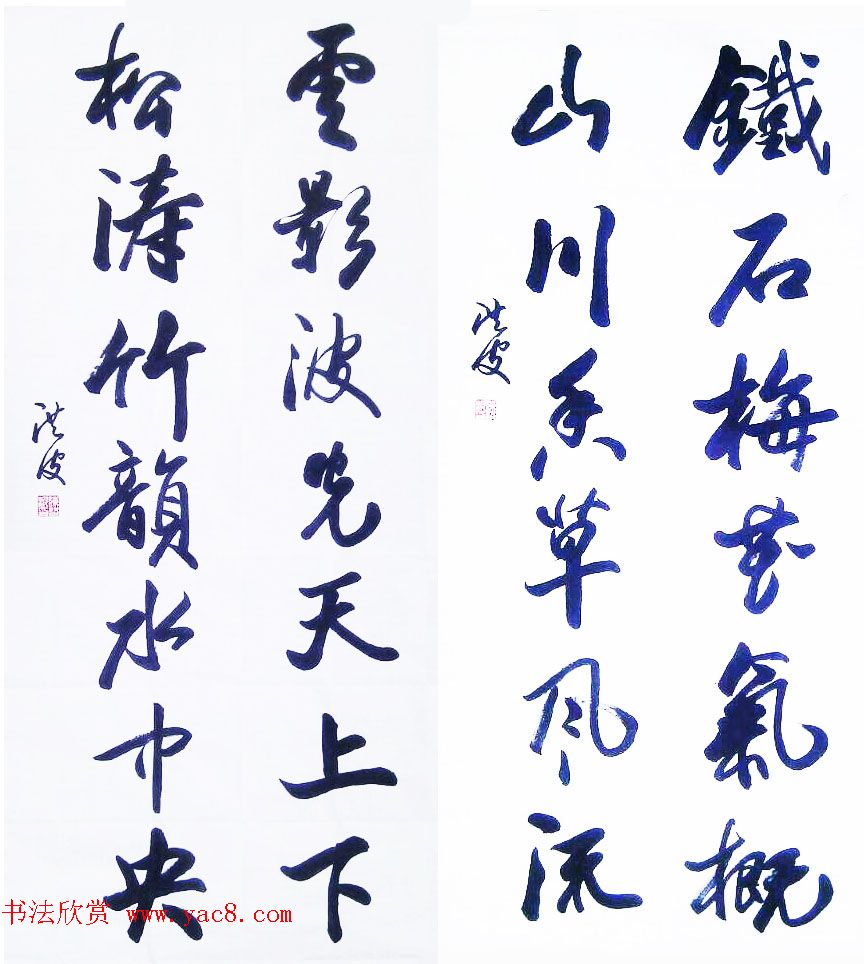 鐵石梅花氣概
山川香草風流
洪波
雲影波光天上下
松涛竹韻水中央
洪波
书法欣赏 www.yac8.com